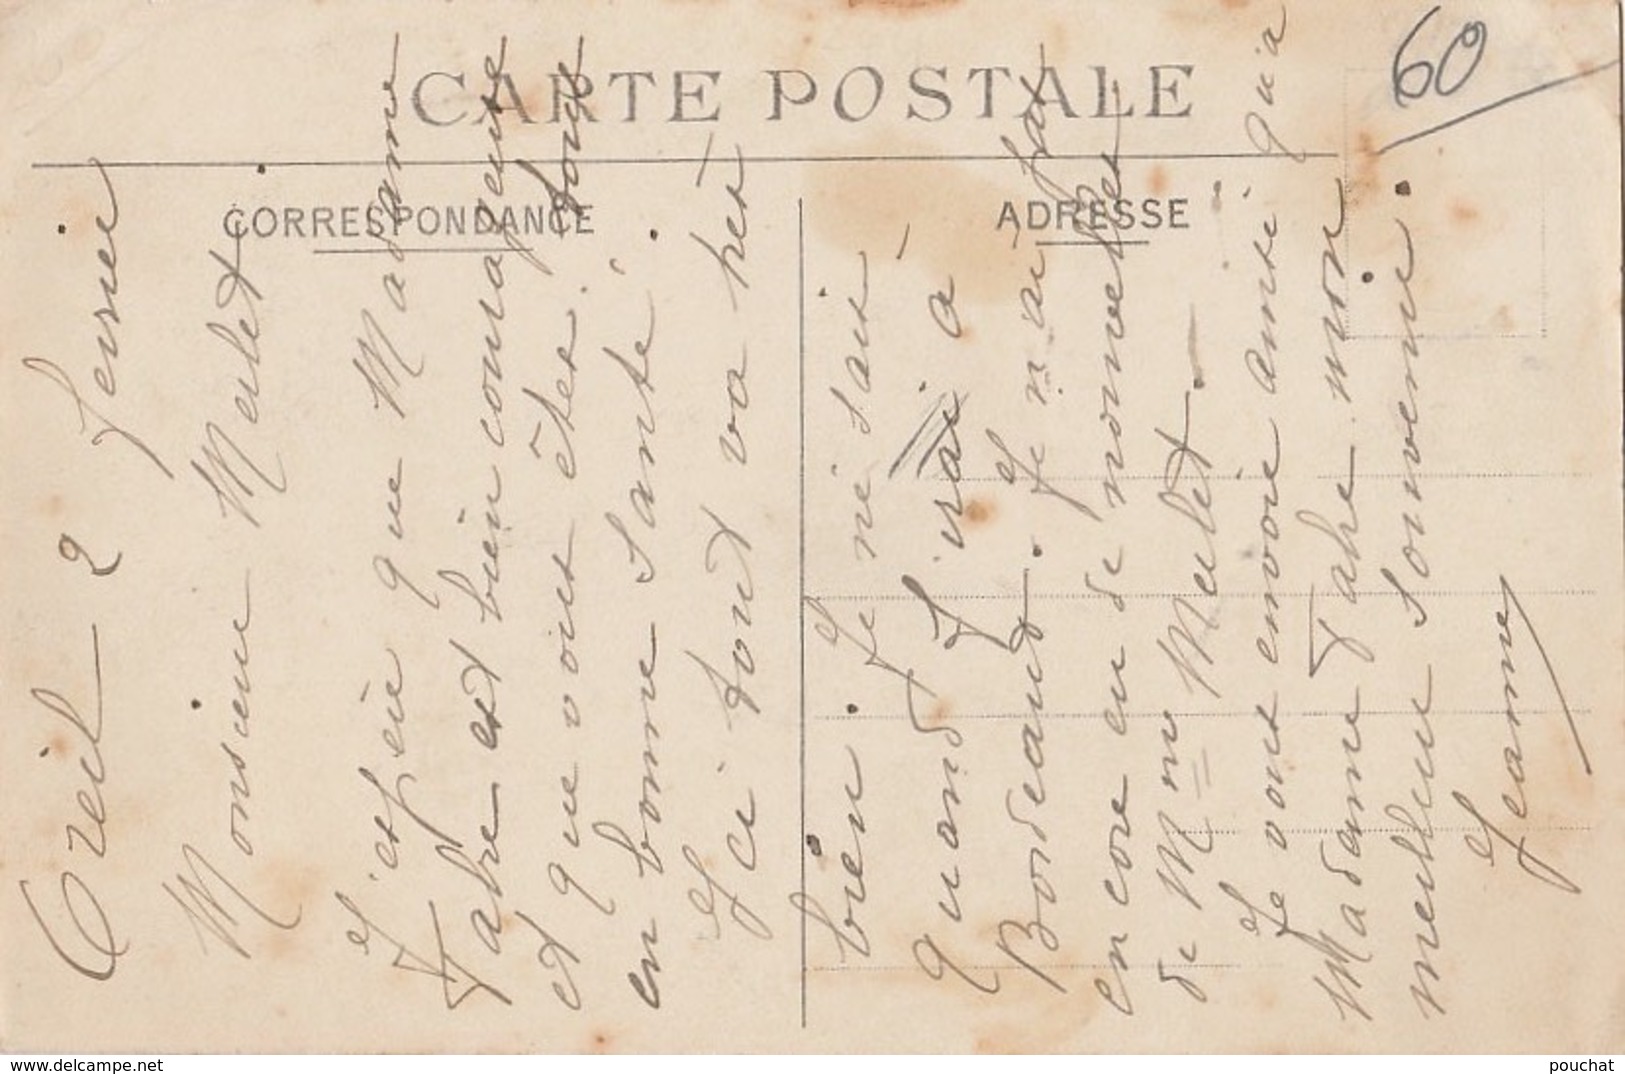 CARTE POSTALE
CORRESPONDANCE
ADRESSE
60
Creil 2 fevrie
Monsieur Mulet
J'espère que Madame
Fabre est bien courageuse
et que vous êtes tous
en bonne santé.
Ici tout va très
bien. Je ne sais
quand J'irai à
Bordeaux. Je n'ai pas
encore eu de nouvelles
de Mme Mulet.
Je vous envoie ainsi qu'a
Madame Fabre mon
meilleur souvenir.
Jeanne
pouchat